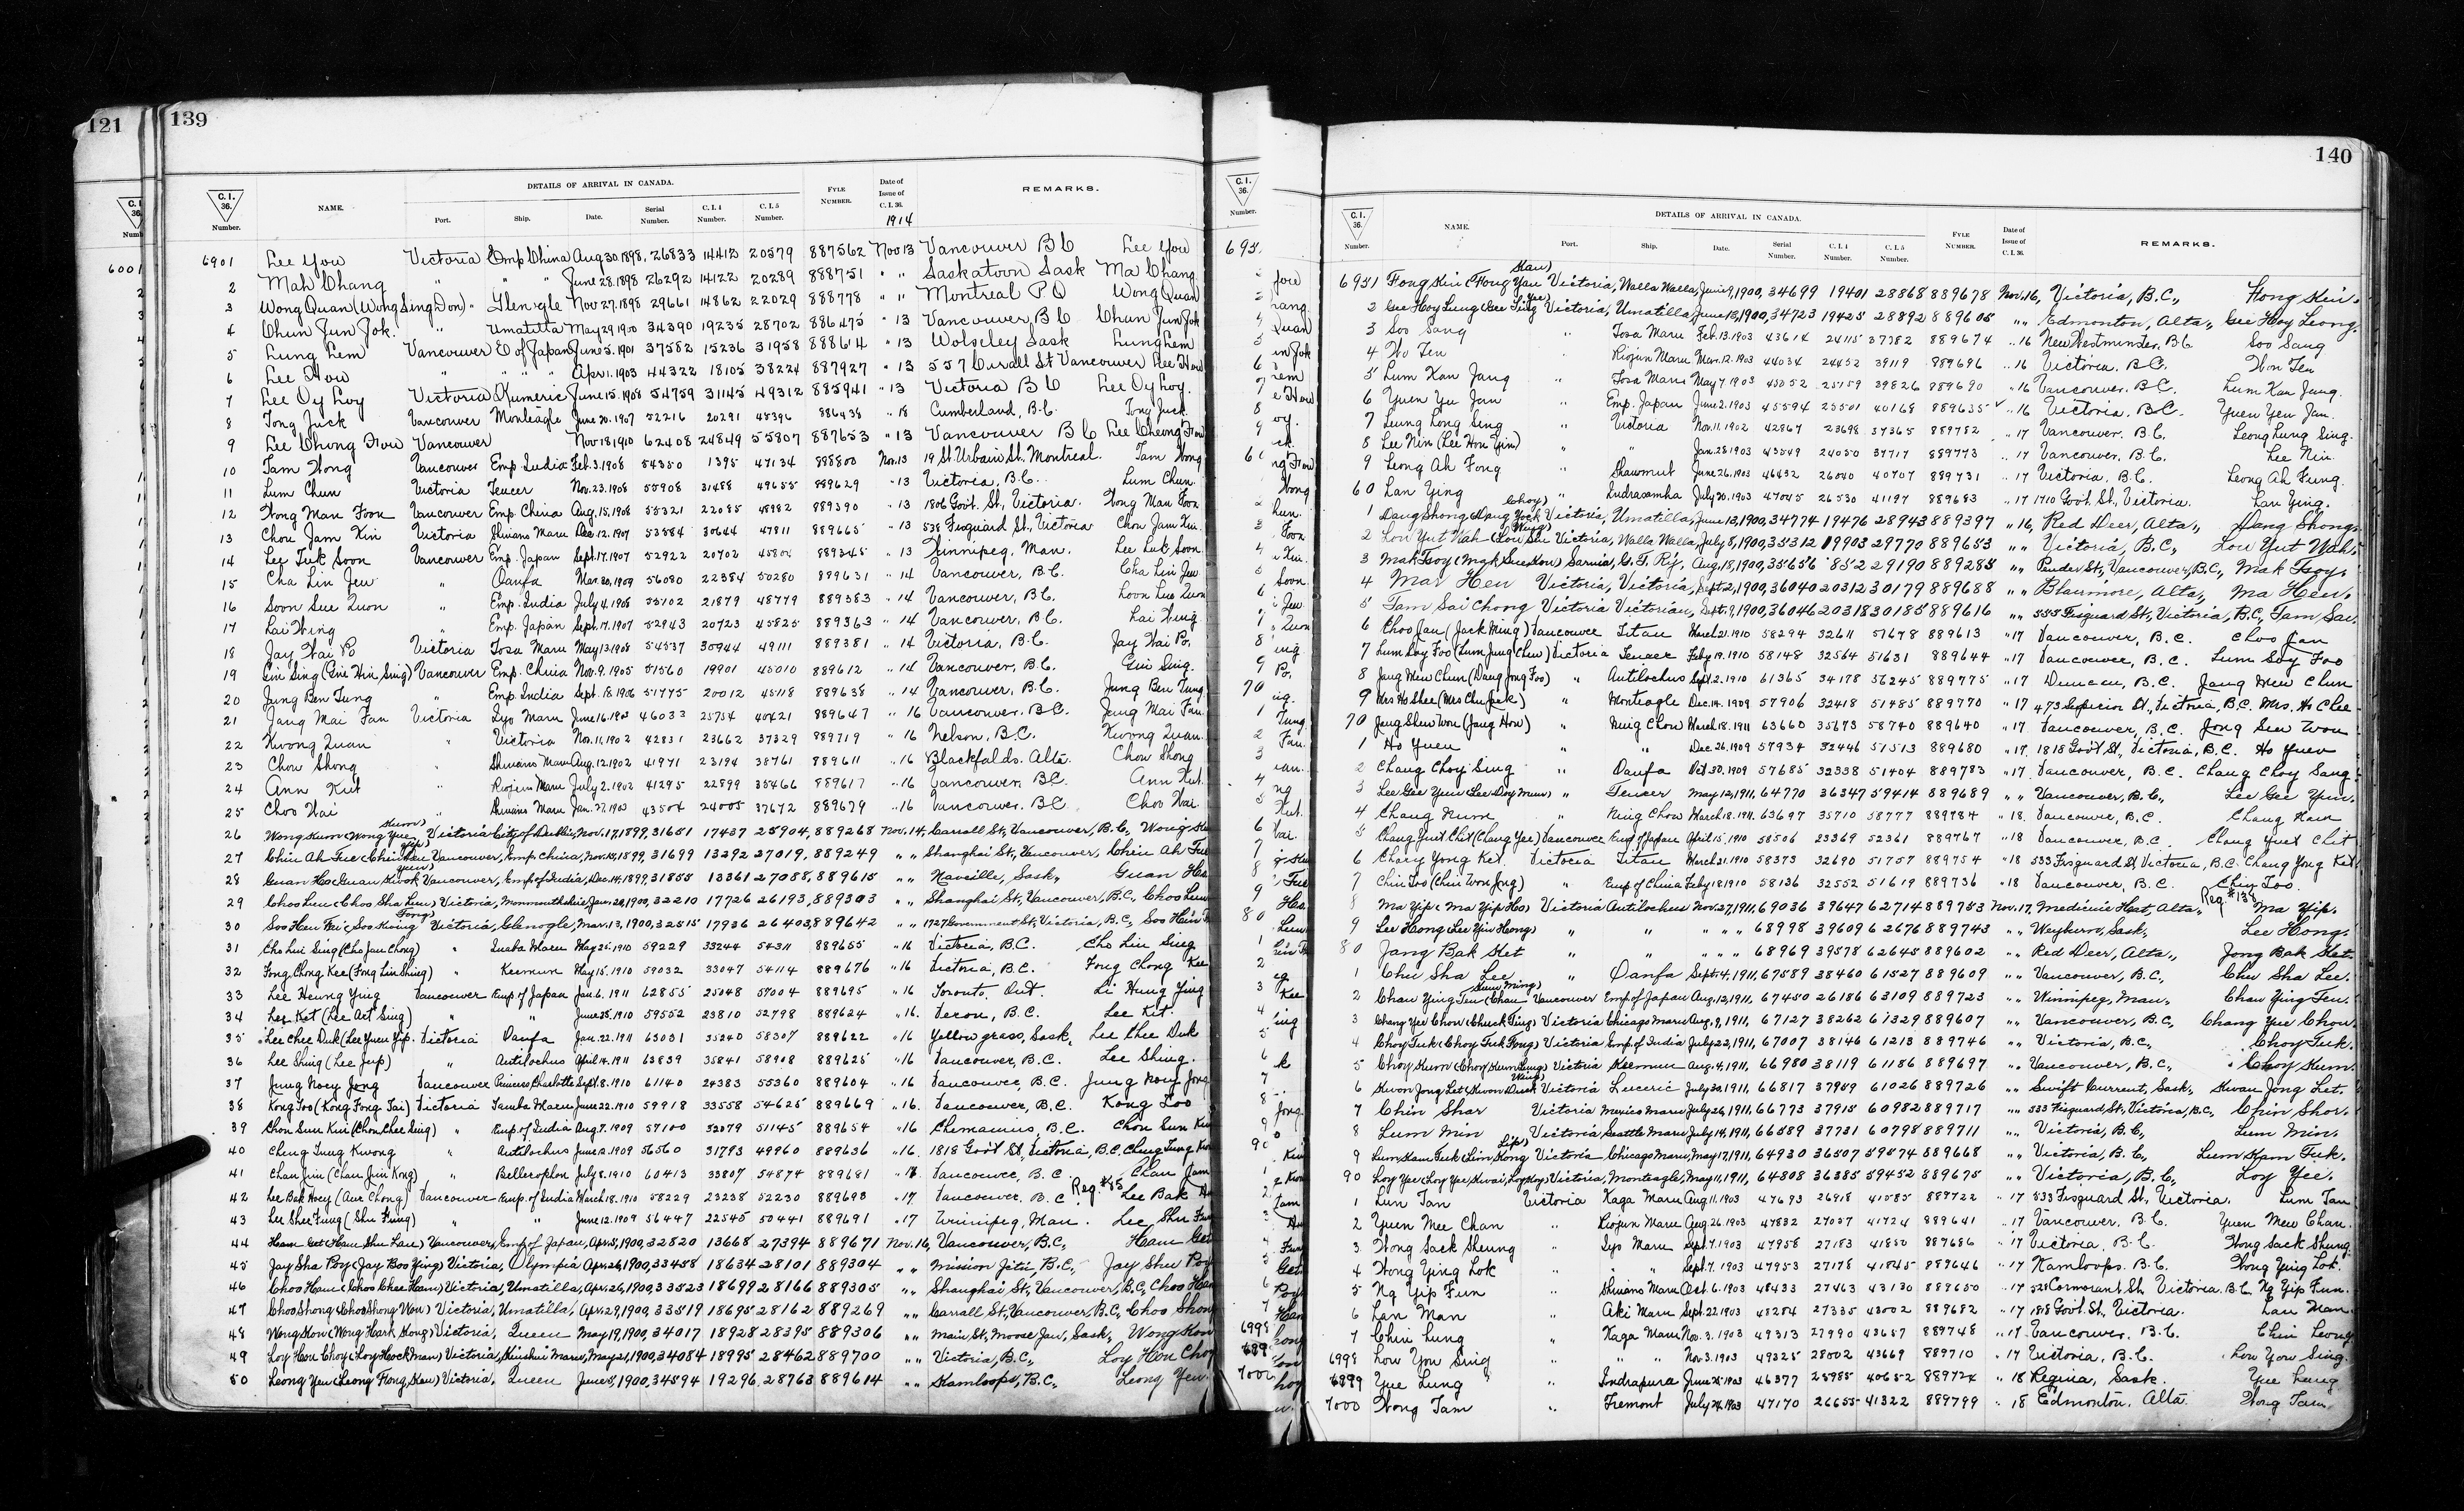 121
139
C.I. 36. Number.
NAME.
DETAILS OF ARRIVAL IN CANADA.
Port. Ship. Date. Serial Number. C. I. 4 Number. C. I. 5 Number.
FYLE NUMBER.
Date of Issue of C. I. 36.
1914
REMARKS.
6001
6901 Lee You Victoria Emp China Aug 30.1898, 26833 14412 20579 887562 Nov 13 Vancouver B C Lee You
2 Mah Chang " " " June 28.1898 26292 14122 20289 888751 " " Saskatoon Sask Ma Chang
3 Wong Quan (Wong Sing Don) " Glenogle Nov 27.1898 29661 14862 22029 888778 " " Montreal P Q Wong Quan
4 Chun Jun Jok. " Umatilla May 29 1900 34390 19235 28702 886475 " 13 Vancouver, B C Chan Jun Jok
5 Lung Lem Vancouver E of Japan June 5.1901 37582 15236 31958 888614 " 13 Wolseley Sask Lung Lem
6 Lee How " " " " Apr 1.1903 44322 18105 38224 887927 " 13 557 Carall St Vancouver Lee How
7 Lee Oy Loy Victoria Kumeric June 15.1908 54759 31145 49312 885941 " 13 Victoria B C Lee Oy Loy.
8 Tong Juck Vancouver Monteagle June 20.1907 52216 20291 45396 886438 " 18 Cumberland, B.C. Tong Juck
9 Lee Chong How Vancouver Nov 18,1910 62408 24849 55807 887653 " 13 Vancouver B C Lee Cheong How
10 Tam Wong Vancouver Emp. India Feb. 3.1908 54350 1395 47134 888800 Nov. 13 19 St. Urbain St. Montreal. Tam Wong
11 Lum Chun Victoria Teucer Nov. 23.1908 55908 31488 49655 889629 " 13 Victoria, B.C. Lum Chun
12 Wong Man Foon Vancouver Emp. China Aug. 15.1908 55321 22085 48982 889390 " 13 1806 Gov't. St., Victoria. Wong Man Foon
13 Chou Jam Kin Victoria Shinano Maru Dec. 12.1907 53884 30644 47811 889665 " 13 538 Fisguard St., Victoria Chou Jam Kin.
14 Lee Tuk Soon Vancouver Emp. Japan Sept. 17.1907 52922 20702 45804 889345 " 13 Winnipeg, Man. Lee Luk Soon
15 Cha Lin Jeu " Oanfa Mar. 30,1909 56080 22384 50280 889631 " 14 Vancouver, B.C. Cha Lin Jeu
16 Soon Sue Quon " Emp. India July 4.1908 55102 21879 48779 889383 " 14 Vancouver, B.C. Loon Lue Quon
17 Lai Wing " Emp. Japan Sept. 17.1907 52943 20723 45825 889363 " 14 Vancouver, B.C. Lai Wing
18 Jay Wai Po Victoria Tosa Maru May 13.1908 54537 30944 49111 889381 " 14 Victoria, B.C. Jay Wai Po.
19 Gin Sing (Gin Hin Sing) Vancouver Emp. China Nov. 9. 1905 51560 19901 45010 889612 " 14 Vancouver, B.C. Gin Sing.
20 Jung Ben Tung " Emp. India Sept. 18.1906 51775 20012 45118 889638 " 14 Vancouver, B.C. Jung Ben Tung
21 Jang Mai Fan Victoria Iyo Maru June 16.1903 46033 25754 40421 889647 " 16 Vancouver. B.C. Jung Mai Fan
22 Kwong Quan " Victoria Nov. 11,1902 42831 23662 37329 889719 " 16 Nelson, B.C. Kwong Quan.
23 Chow Shong " Shinano Maru Aug. 12,1902 41971 23194 38761 889611 " 16 Blackfalds. Alta. Chow Shong
24 Ann Kut " Riojun Maru July 2.1902 41295 22899 35466 889617 " 16 Vancouver. B.C. Ann Kut.
25 Choo Wai " Shinano Maru Jan. 27.1903 43504 24005 37672 889679 " 16 Vancouver. B.C Choo Wai
26 Wong Kum (Wong Yue Kum) Victoria City of Dublin, Nov. 17,1899, 31651 17437 25904, 889268 Nov. 14. Carrall St., Vancouver, B.C.,
27 Chin Ah Tue (Chin Yip Len) Vancouver, Emp. China, Nov. 15,1899, 31699 13292 27019, 889249 " " Shanghai St., Vancouver, Chin Ah Tue
28 Guan Ho (Guan Kwok Yuen) Vancouver, Emp. of India, Dec. 14,1899, 31855 13361 27088, 889615 " " Naseille, Sask.,
29 Choo Lum (Choo Sha Lum) Victoria, Monmouthshire, Jan. 20,1900, 32210 17726 26193, 889303 " " Shanghai St., Vancouver, B.C.,
30 Soo Hen Fai (Soo King Tong) Victoria, Glenogle, Mar. 13,1900, 32515 17936 26403, 889642 " " 1727 Government St., Victoria, B.C.,
31 Cho Lui Sing (Cho Jan Chong) " Inaba Maru May 25.1910 59229 33244 54311 889655 " 16 Victoria, B.C. Cho Lin Sing
32 Fong Chong Kee (Fong Lin Shing) " Keemun May 15.1910 59032 33047 54114 889676 " 16 Victoria, B.C. Fong Chong Kee
33 Lee Heung Ying Vancouver Emp. of Japan Jan. 6. 1911 62855 25048 57004 889695 " 16 Toronto. Ont. Li Hung Ying
34 Lee Ket (Lee Act Sing) " " June 25.1910 59552 23810 52798 889624 " 16. Vernon, B.C. Lee Kit.
35 Lee Chee Duk (Lee Yuen Yip. Victoria Oanfa Jan. 22.1911 63031 35240 58307 889622 " 16 Yellow grass, Sask, Lee Chee Duk
36 Lee Shing (Lee Jup) " Antilochus April 14.1911 63839 35841 58908 889625 " 16 Vancouver, B.C. Lee Shing.
37 Jung Noey Jong Vancouver Princess Charlotte Sept. 8.1910 61140 24383 55360 889604 " 16 Vancouver, B.C. Jung Noey Jong
38 Kong Too (Kong Fong Tai) Victoria Tamba Maru June 22.1910 59918 33558 54625 889669 " 16. Vancouver, B.C. Kong Too
39 Chon Sun Kui (Chon Chee Sing) " Emp. of India Aug. 7.1909 57100 32079 51145 889654 " 16 Chemainus, B.C. Chon Sun
40 Cheng Tung Kwong " Antilochus June 12.1909 56560 31793 49960 889636 " 16. 1818 Gov't St, Victoria, B.C. Cheng Tung
41 Chan Jim (Chan Jim Kong) " Bellerophon July 8.1910 60413 33807 54874 889681 " 17 Vancouver, B.C Chan Jam
42 Lee Bak Hoey (Aur Chong) Vancouver Emp. of India March 18.1910 58229 23238 52230 889693 " 17 Vancouver, B.C. Reg. #85 Lee Bak
43 Lee Shee Fung (Shu Fung) " " June 12.1909 56447 22545 50441 889691 " 17 Winnipeg, Man. Lee Shu
44 Ham Get (Ham Shu Lan) Vancouver, Emp. of Japan, Apr. 3,1900, 32820 13668 27394 889671 Nov. 16, Vancouver, B.C., Ham Get
45 Jay Sha Poy (Jay Boo Ying) Victoria, Olympia Apr. 26,1900, 33458 18634 28101 889304 " " Mission Jctn, B.C., Jay Shu Poy
46 Choo Ham (Choo Chee Ham) Victoria, Umatilla, Apr. 26,1900, 33523 18699 28166 889305 " " Shanghai St., Vancouver, B.C., Choo Ham
47 Choo Shong (Choo Shong Won) Victoria, Umatilla, Apr. 29,1900, 33519 18695 28162 889269 " " Carrall St., Vancouver, B.C., Choo Shong
48 Wong Kow (Wong Hark Kong) Victoria, Queen May 19,1900, 34017 18928 28395 889306 " " Main St., Moose Jaw, Sask., Wong Kow
49 Loy Hen Choy (Loy Hock Man) Victoria, Kinshiu Maru, May 21,1900, 34084 18995 28462 889700 " " Victoria, B.C., Loy Hen Choy
50 Leong Yen (Leong Hong Kew) Victoria, Queen June 8,1900, 34594 19296 28763 889614 " " Kamloops, B.C., Leong Yen.
140
C.I. 36. Number.
NAME.
DETAILS OF ARRIVAL IN CANADA.
Port. Ship. Date. Serial Number. C. I. 4 Number. C. I. 5 Number.
FYLE NUMBER.
Date of Issue of C. I. 36.
REMARKS.
6951 Fong Kin (Fong Yau Kau) Victoria, Walla Walla, June 9,1900, 34699 19401 28868 889678 Nov. 16, Victoria, B.C., Fong Kin.
2 Gee Hoy Lung (Gee Sing Yee) Victoria, Umatilla, June 13,1900, 34723 19425 28892 889605 " " Edmonton, Alta., Gee Hoy Leong.
3 Soo Sang " Tosa Maru Feb. 13.1903 43614 24115 37782 889674 " 16 New Westminster, B.C. Soo Sang
4 Wo Ten Riojun Maru Mar. 12.1903 44034 24452 39119 889696 " 16 Victoria. B.C. Won Ten
5 Lum Kan Jang " Tosa Maru May 7.1903 45052 25159 39826 889690 " 16 Vancouver. B.C. Lum Kan Jang.
6 Yuen Yu Jan " Emp. Japan June 2.1903 45594 25501 40168 889635 " 16 Victoria. B.C. Yuen Yen Jan.
7 Leung Long Sing " Victoria Nov. 11.1902 42867 23698 37365 889782 " 17 Vancouver. B.C. Leong Lung Sing.
8 Lee Nin (Lee Hon Yin) " " Jan. 28.1903 43549 24050 37717 889773 " 17 Vancouver, B.C. Lee Nin.
9 Leong Ah Fong " Shawmut June 26.1903 46432 26040 40707 889731 " 17 Victoria. B.C. Leong Ah Fung.
60 Lan Ying " Indrasamha July 20.1903 47045 26530 41197 889683 " 17 1710 Govt. St., Victoria. Lan Ying.
1 Dang Shong (Dang Yock Choy) Victoria, Umatilla, June 13,1900, 34774 19476 28943 889397 " 16, Red Deer, Alta., Dang Shong.
2 Lou Yut Wah (Lou Sin Wing) Victoria, Walla Walla, July 8,1900, 35312 19903 29770 889653 " " Victoria, B.C., Lou Yut Wah.
3 Mak Tsoy (Mak Sue Kow) Sarnia, G.T. Ry, Aug. 18,1900, 35656 852 29190 889285 " " Pender St., Vancouver, B.C., Mak Tsoy.
4 Mar Hen Victoria, Victoria, Sept. 2,1900, 36040 20312 30179 889688 " " Blairmore, Alta., Ma Hen.
5 Tam Sai Chong Victoria Victorian, Sept. 9,1900, 36046 20318 30185 889616 " " 555 Fisguard St., Victoria, B.C., Tam Sai.
6 Choo Jan (Jack Ming) Vancouver Titan March 21.1910 58294 32611 51678 889613 " 17 Vancouver, B.C. Choo Jan
7 Lum Soy Foo (Lum Jung Chew) Victoria Teucer Feby 19.1910 58148 32564 51631 889644 " 17 Vancouver, B.C. Lum Soy Foo
8 Jang Mew Chun (Dang Jong Foo) " Antilochus Sept. 2.1910 61365 34178 56245 889775 " 17 Duncan, B.C. Jang Mew Chun
9 Mrs Ho Shee (Mrs Chu Jack) " Monteagle Dec. 14.1909 57906 32418 51485 889770 " 17 473 Superior St, Victoria, B.C. Mrs. Ho Chee
70 Jang Shew Won (Jang Hon) " Ning Chow March 18.1911 63660 35673 58740 889640 " 17 Vancouver, B.C. Jong Seu Won
1 Ho Yuen " " Dec. 26.1909 57934 32446 51513 889680 " 17. 1818 Gov't St, Victoria, B.C. Ho Yuen
2 Chang Choy Sing " Oanfa Oct 30.1909 57685 32338 51404 889783 " 17. Vancouver, B.C. Chang Choy Sang
3 Lee Gee Yum (Lee Doy Mun) " Teucer May 12,1911, 64770 36347 59414 889689 " " Vancouver, B.C., Lee Gee Yun.
4 Chang Num " Ning Chow March 18.1911 63697 35710 58777 889784 " 18. Vancouver, B.C.
5 Chang Yuet Chit (Chang Yee) Vancouver Emp of Japan April 15.1910 58506 23369 52361 889767 " 18 Vancouver, B.C Chang Yuet Chit
6 Chong Yong Ket. Victoria Titan March 21.1910 58373 32690 51757 889754 " 18 533 Fisguard St, Victoria, B.C. Chang Yong Ket
7 Chin Too (Chin Won Jng) " Emp of China Feby 18.1910 58136 32552 51619 889736 " 18 Vancouver, B.C. Chin Too.
8 Ma Yip (Ma Yip Ho) Victoria Antilochus Nov. 27,1911, 69036 39647 62714 889753 Nov. 17, Medicine Hat, Alta., Reg #139 Ma Yip.
9 Lee Hong (Lee Yin Hong) " " " " " 68998 39609 62676 889743 " " Weyburn, Sask., Lee Hong.
80 Jang Bak Ket " " " " " 68969 39578 62645 889602 " " Red Deer, Alta., Jong Bak Ket.
1 Chu Sha Lee " Oanfa Sept. 4,1911, 67589 38460 61527 889609 " " Vancouver, B.C., Chu Sha Lee.
2 Chan Ying Ten (Chan Sum Ming) Vancouver Emp. of Japan Aug. 12,1911, 67450 26186 63109 889723 " " Winnipeg, Man., Chan Ying Ten.
3 Chang Yee Chow (Chuck Ting) Victoria Chicago Maru Aug. 9,1911, 67127 38262 61329 889607 " " Vancouver, B.C., Chang Yue Chow.
4 Choy Tuk (Choy Tuk Fong) Victoria Emp. of India July 22,1911, 67007 38146 61213 889746 " " Victoria, B.C., Choy Tuk.
5 Choy Kum (Choy Kum Lung) Victoria Keemun Aug. 4,1911, 66980 38119 61186 889697 " " Vancouver, B.C., Choy Kum.
6 Kwon Jong Let (Kwon Duck Wing) Victoria Luceric July 30,1911, 66817 37959 61026 889726 " " Swift Current, Sask., Kwan Jong Let.
7 Chin Shar Victoria Mexico Maru July 26,1911, 66773 37915 60982 889717 " " 533 Fisguard St., Victoria, B.C., Chin Shor.
8 Lum Min Victoria Seattle Maru July 14,1911, 66589 37731 60798 889711 " " Victoria, B.C., Lum Min.
9 Lum Kam Tuk (Lim Kong Lip) Victoria Chicago Maru, May 17,1911, 64930 36507 59574 889668 " " Victoria, B.C., Lum Kam Tuk.
90 Loy Yee (Loy Yee, Kwai, Loy Loy) Victoria, Monteagle, May 11,1911, 64808 36385 59452 889675 " " Victoria, B.C., Loy Yee.
1 Lun Tan Victoria Kaga Maru Aug. 11.1903 47693 26918 41585 889722 " 17 533 Fisguard St., Victoria. Lum Tan
2 Yuen Mee Chan " Riojun Maru Aug. 26.1903 47832 27057 41724 889641 " 17 Vancouver. B.C. Yuen Mew Chan.
3 Wong Sack Sheung " Iyo Maru Sept. 7.1903 47958 27183 41850 887686 " 17 Victoria, B.C. Wong Sack Shung.
4 Wong Ying Lok " " " Sept. 7. 1903 47953 27178 41845 887646 " 17 Kamloops. B.C. Wong Ying Lok.
5 Ng Yip Fun " Shinano Maru Oct. 6.1903 48433 27463 43130 889650 " 17 528 Cormorant St. Victoria. B.C. Ng Yip Fun.
6 Lan Man " Aki Maru Sept. 22.1903 48284 27335 43002 889682 " 17 1818 Govt. St., Victoria. Lan Man.
7 Chin Lung " Kaga Maru Nov. 3. 1903 49313 27990 43657 889748 " 17 Vancouver. B.C. Chin Leong
6998 Low You Sing " " " Nov. 3.1903 49325 28002 43669 889710 " 17 Victoria, B.C. Low Yow Sing.
6999 Yue Lung " Indrapura June 25.1903 46377 25985 40652 889724 " 18 Regina, Sask. Yue Lung
7000 Wong Tam " Tremont July 24.1903 47170 26655 41322 889799 " 18 Edmonton, Alta. Wong Tam.